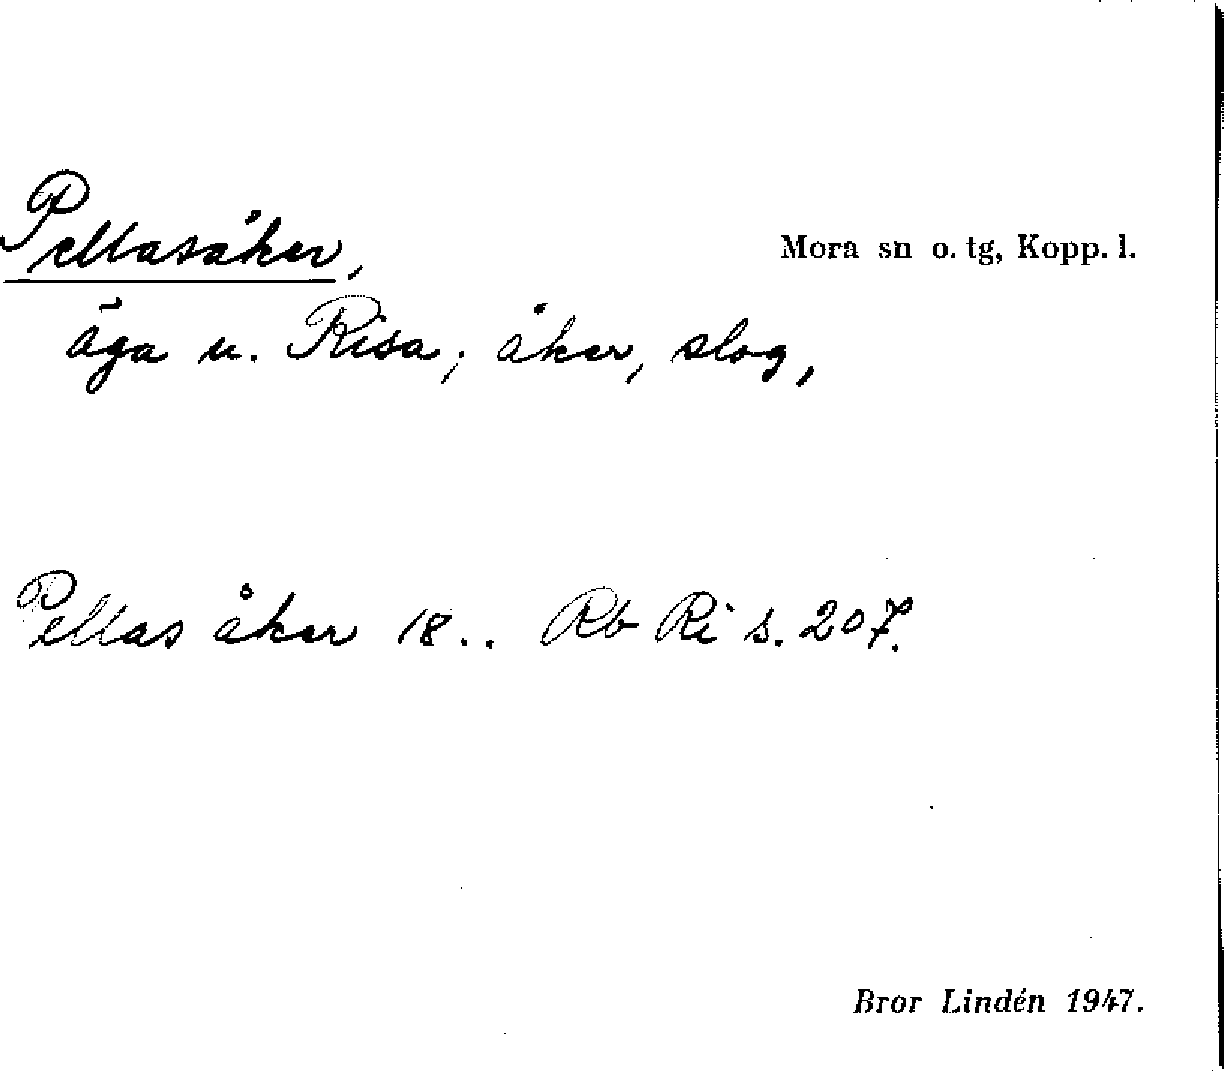 Pellasåker,
Mora sn o. tg, Kopp. l.
äga u. Risa; åker, slog,
Pellas åker 18.. Rb Ri s. 207.
Bror Lindén 1947.